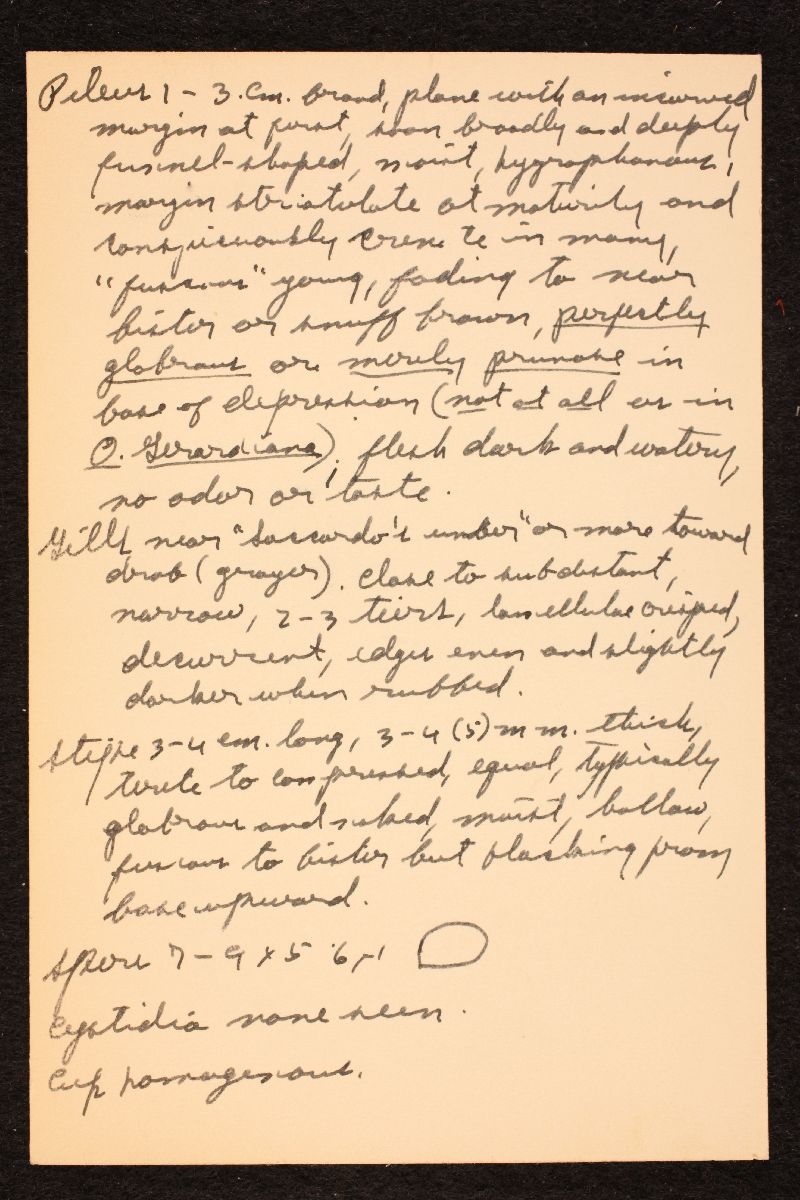 Pileus 1 - 3 cm. broad, plane with an incurved
margin at first, soon broadly and deeply
funnel-shaped, moist, hygrophanous,
margin striatulate at maturity and
conspicuously crenate in many,
"fuscous" young, fading to near
bister or snuff brown, perfectly
glabrous or merely pruinose in
base of depression (not at all as in
O. Gerardiana), flesh dark and watery,
no odor or taste.
Gills near "Saccardo's umber" or more toward
drab (grayer). close to subdistant,
narrow, 2-3 tiers, lamellulae crisped,
decurrent, edges even and slightly
darker when rubbed.
Stipe 3-4 cm. long, 3-4 (5) mm. thick,
terete to compressed, equal, typically
glabrous and naked, moist, hollow,
fuscous to bister but blacking from
base upward.
Spores 7-9 x 5 6 µ
Cystidia none seen.
Cup homogenous.